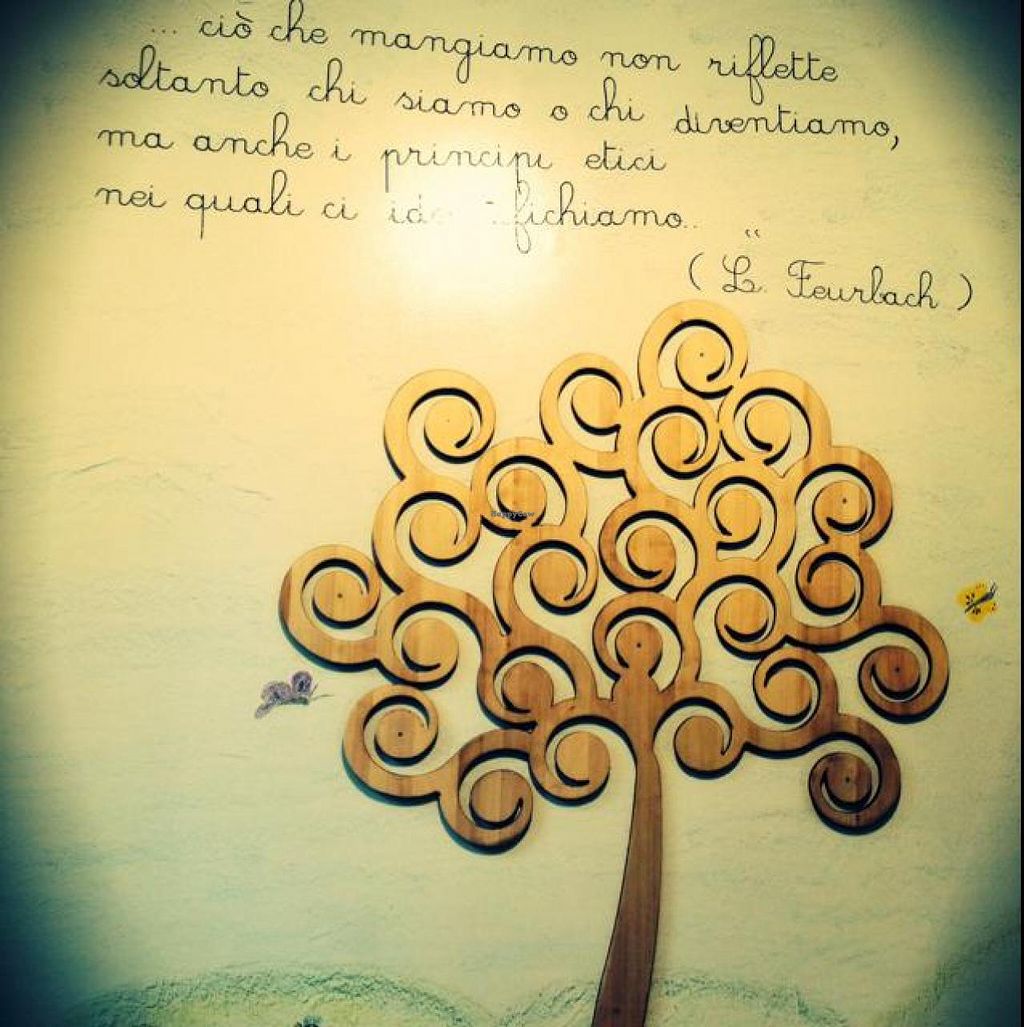 ... ciò che mangiamo non riflette
soltanto chi siamo o chi diventiamo,
ma anche i principi etici
nei quali ci identifichiamo.. "
( L. Feurbach )
HappyCow